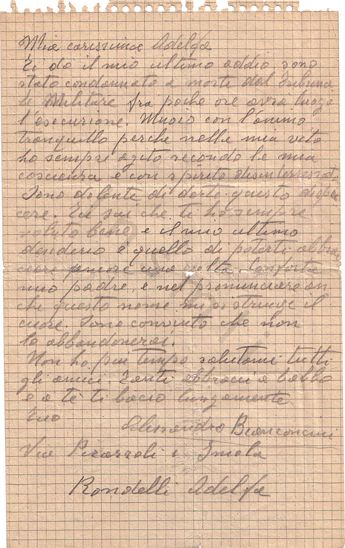 Mia carissima Adelfa
Ti do il mio ultimo addio sono
stato condannato a morte dal Tribuna
le Militare fra poche ore avrà luogo
l'esecuzione. Muoio con l'animo
tranquillo perche nella mia vita
ho sempre agito secondo la mia
coscienza e con spirito disinteressato.
Sono dolente di darti questo dispia
cere. Tu sai che ti ho sempre
voluto bene e il mio ultimo
desiderio è quello di poterti abbrac
ciare ancora una volta. Conforta
mio padre, e nel pronunciare an
che questo nome mi si stringe il
cuore. Sono convinto che non
lo abbandonerai.
Non ho più tempo salutami tutti
gli amici. Tanti abbracci a babbo
e a te ti bacio lungamente
Tuo
Alessandro Bianconcini
Via Imola
Rondelli Adelfa